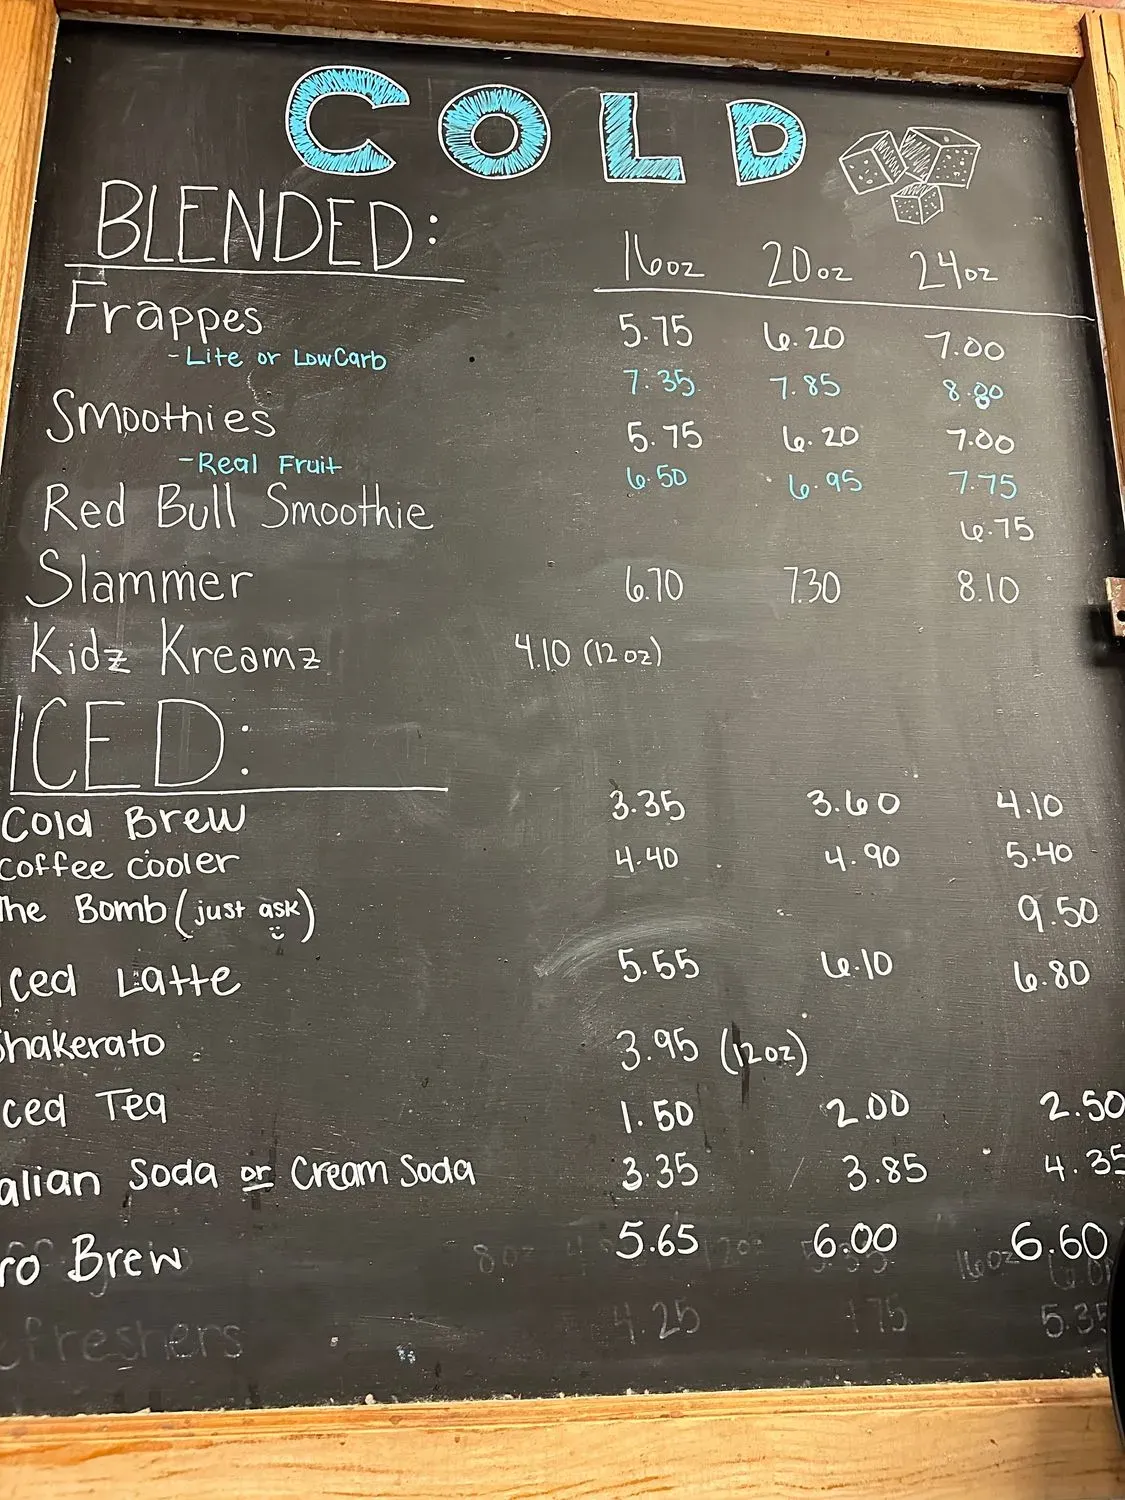 COLD
BLENDED:
16oz 20oz 24oz
Frappes 5.75 6.20 7.00
-Lite or LowCarb 7.35 7.85 8.80
Smoothies 5.75 6.20 7.00
-Real Fruit 6.50 6.95 7.75
Red Bull Smoothie 6.75
Slammer 6.70 7.30 8.10
Kidz Kreamz 4.10 (12oz)
ICED:
Cold Brew 3.35 3.60 4.10
Coffee Cooler 4.40 4.90 5.40
The Bomb (just ask) 9.50
Iced Latte 5.55 6.10 6.80
Shakerato 3.95 (12oz)
ced Tea 1.50 2.00 2.50
alian Soda or Cream Soda 3.35 3.85 4.35
ro Brew 5.65 6.00 6.60
efreshers 4.25 5.35